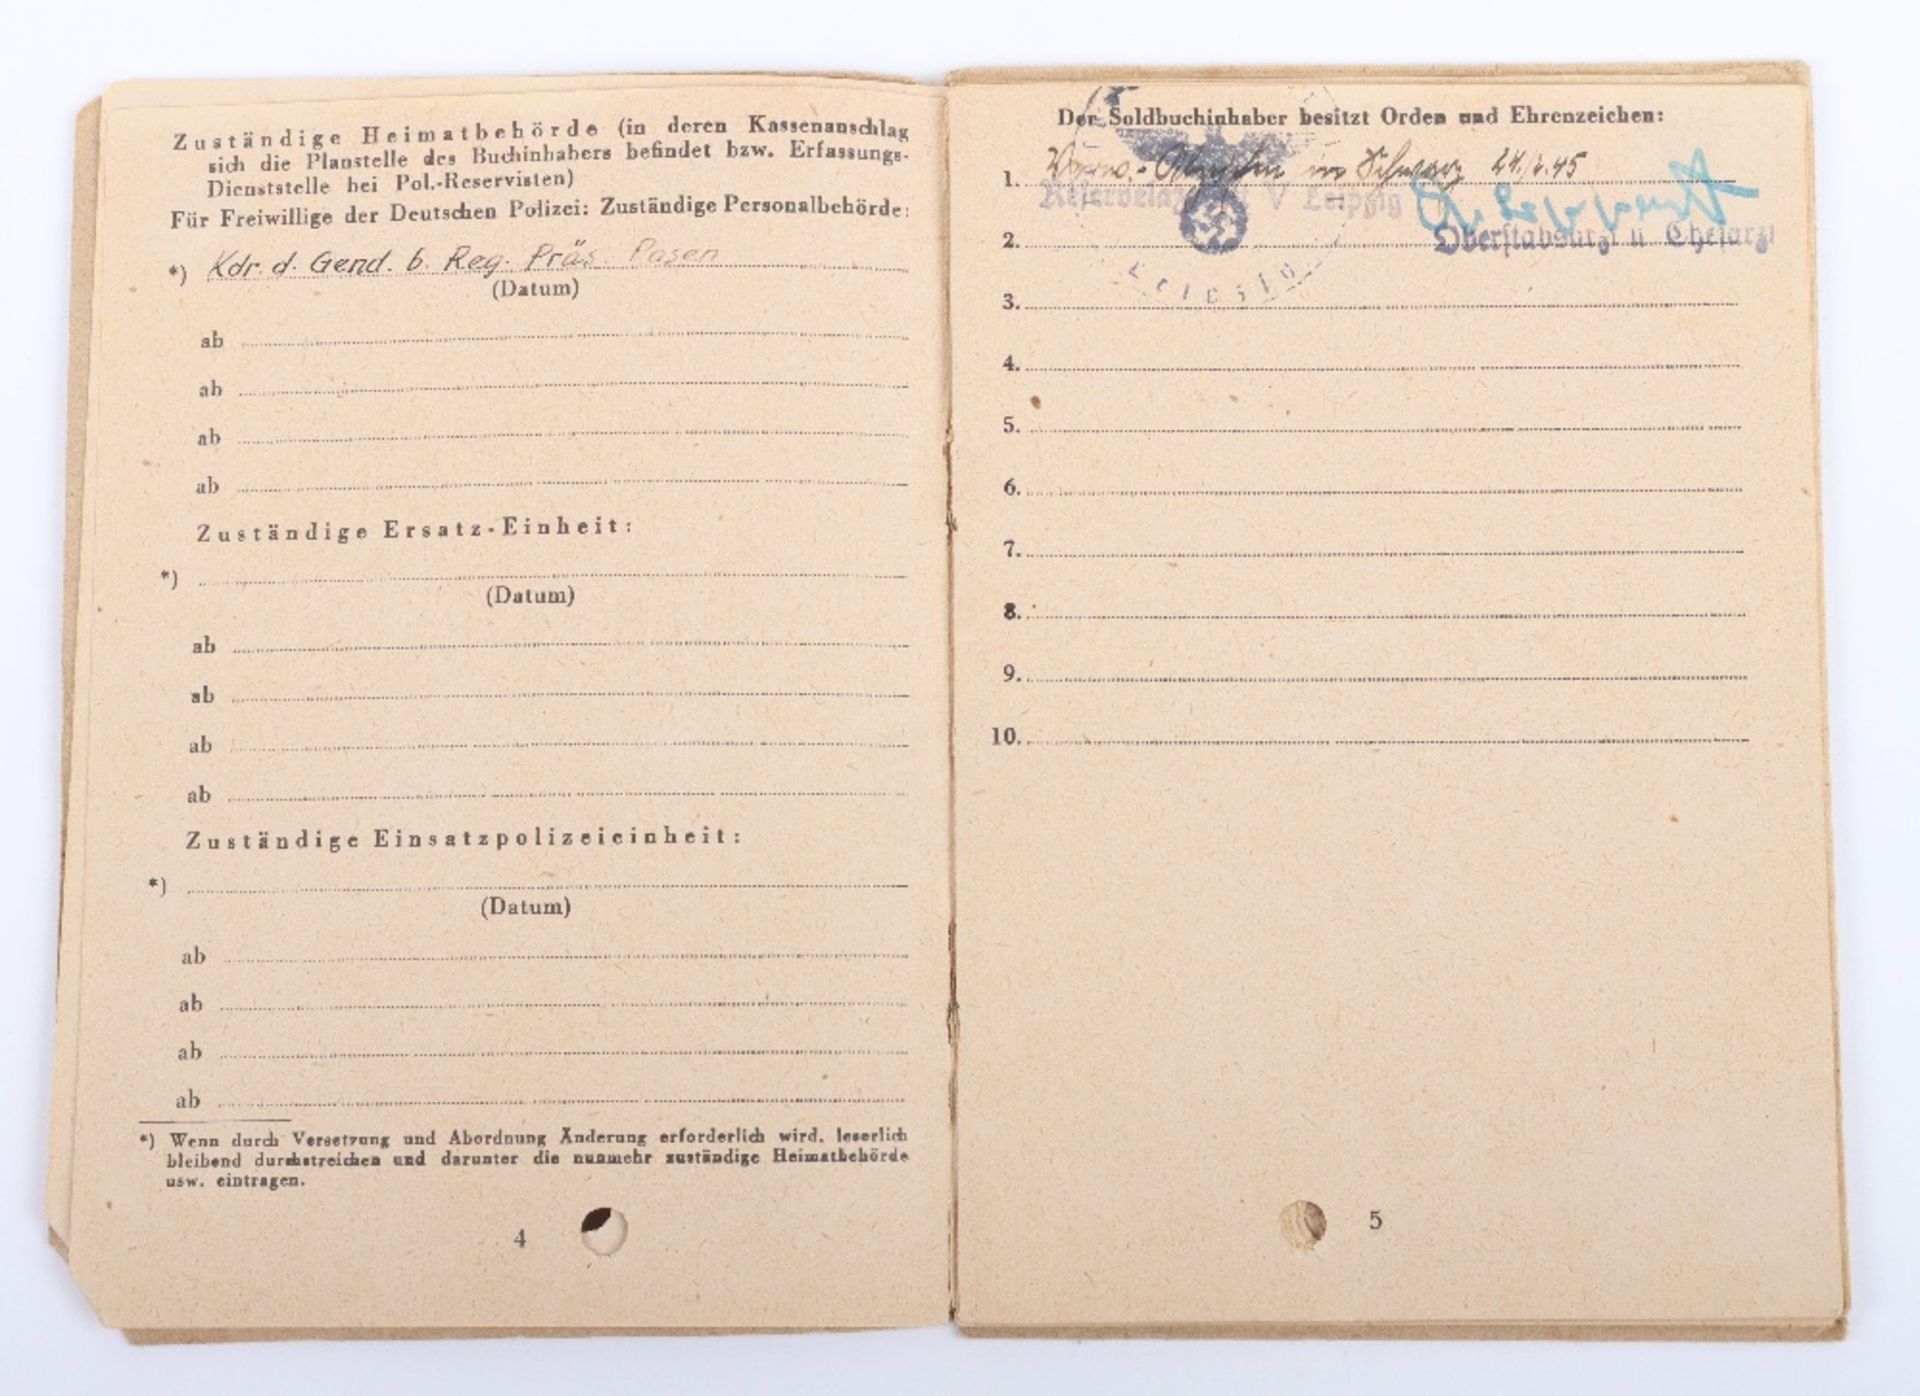 Zuständige Heimatbehörde (in deren Kassenanschlag
sich die Planstelle des Buchinhabers befindet bzw. Erfassungs-
Dienststelle bei Pol.-Reservisten)
Für Freiwillige der Deutschen Polizei: Zuständige Personalbehörde:
*) Kdr. d. Gend. b. Reg. Präs. Posen
(Datum)
ab
ab
ab
ab
Zuständige Ersatz-Einheit:
*)
(Datum)
ab
ab
ab
ab
Zuständige Einsatzpolizeieinheit:
*)
(Datum)
ab
ab
ab
ab
*) Wenn durch Versetzung und Abordnung Änderung erforderlich wird, leserlich
bleibend durchstreichen und darunter die nunmehr zuständige Heimatbehörde
usw. eintragen.
4
Der Soldbuchinhaber besitzt Orden und Ehrenzeichen:
1. Verw.-Abzeichen in Schwarz
V Leipzig
2. Oberstabsarzt u Chefarzt
3.
4.
5.
6.
7.
8.
9.
10.
5